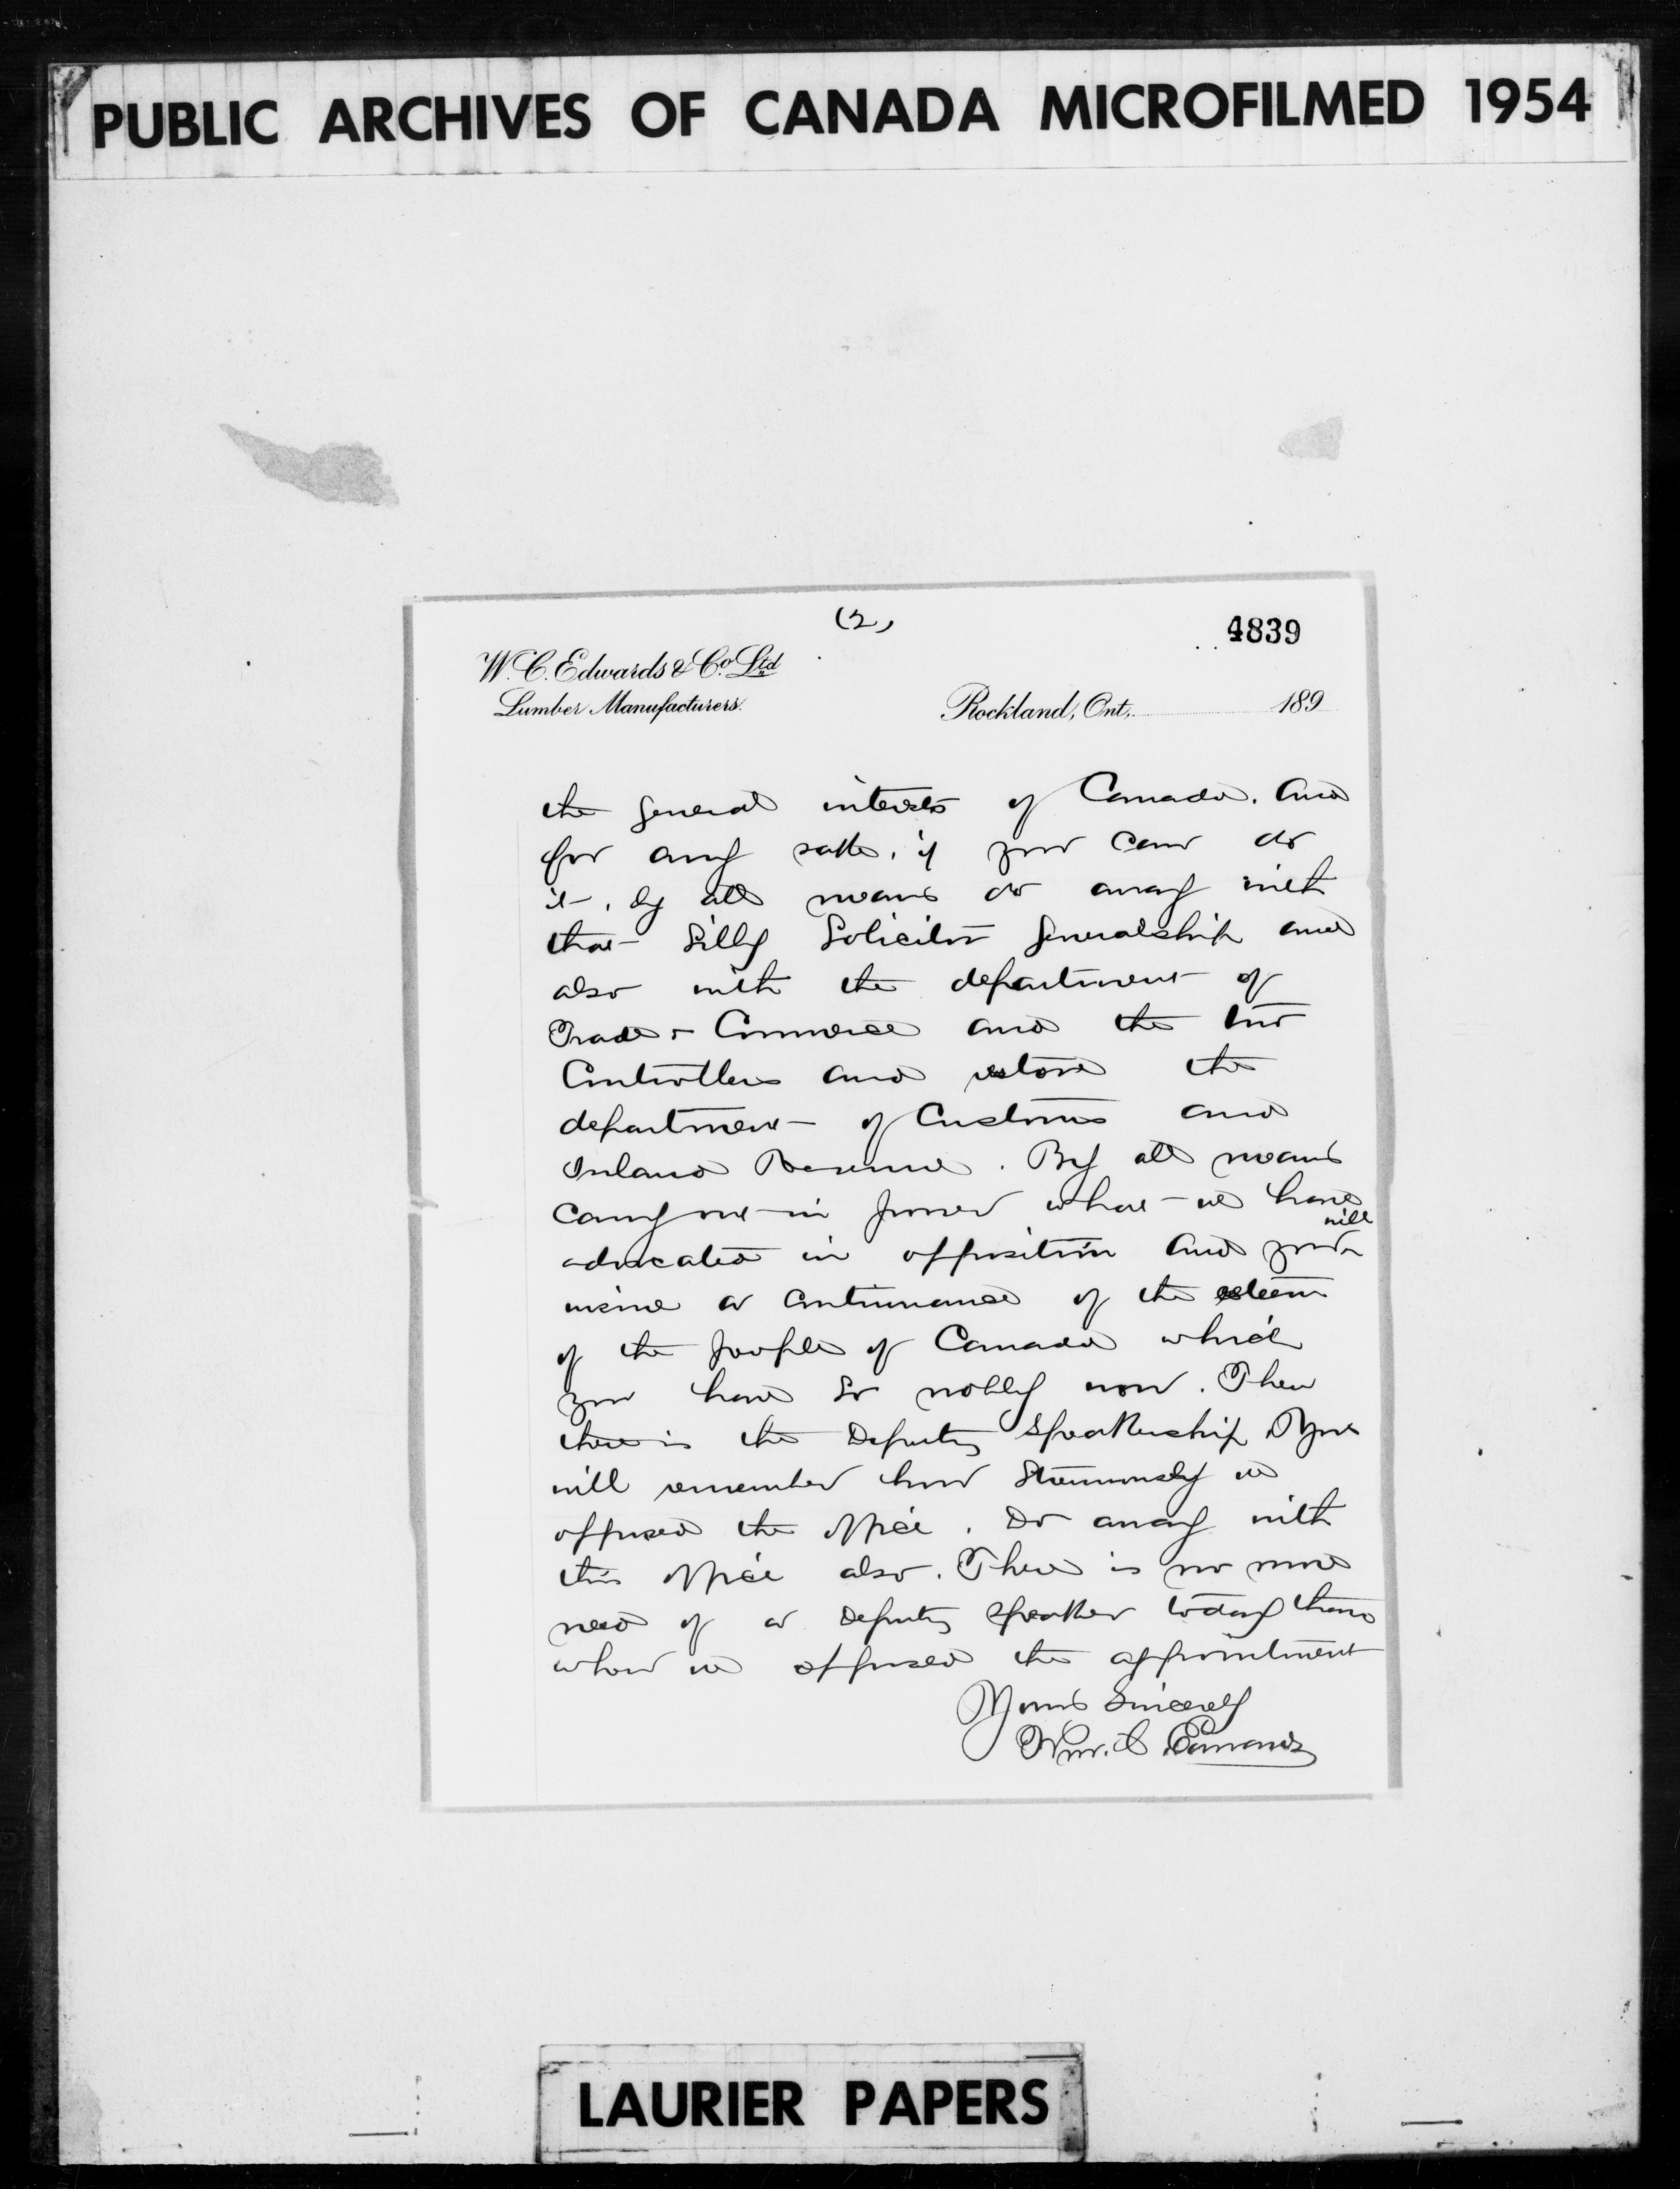 PUBLIC ARCHIVES OF CANADA MICROFILMED 1954
(2)
4839
W. C. Edwards & Co. Ltd
Lumber Manufacturers.
Rockland, Ont, 189
the general interests of Canada. And
for any sake, if you can do
it, by all means do away with
that silly Solicitor Generalship and
also with the department of
Trade & Commerce and the two
Controllers and restore the
department of Customs and
Inland Revenue. By all means
carry out in power what we have
advocated in opposition and you will
insure a continuance of the esteem
of the people of Canada which
you have so nobly won. Then
there is the Deputy Speakership. You
will remember how strenuously we
opposed the office. Do away with
this office also. There is no more
need of a Deputy Speaker today than
when we opposed the appointment
Yours Sincerely
Wm. C Edwards
LAURIER PAPERS